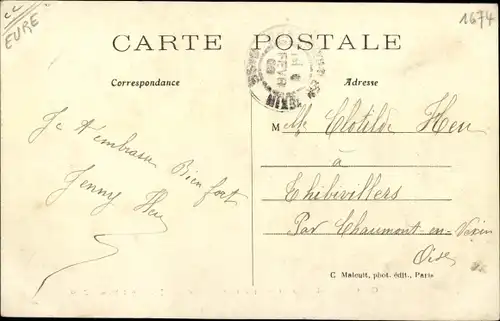 EURE
1674
CARTE POSTALE
Correspondance
Adresse
Je t'embrasse Bien fort
Jenny Heu
Melle Clotilde Heu
à
Thibivillers
Par Chaumont-en-Vexin
Oise
C Malcuit, phot. édit., Paris